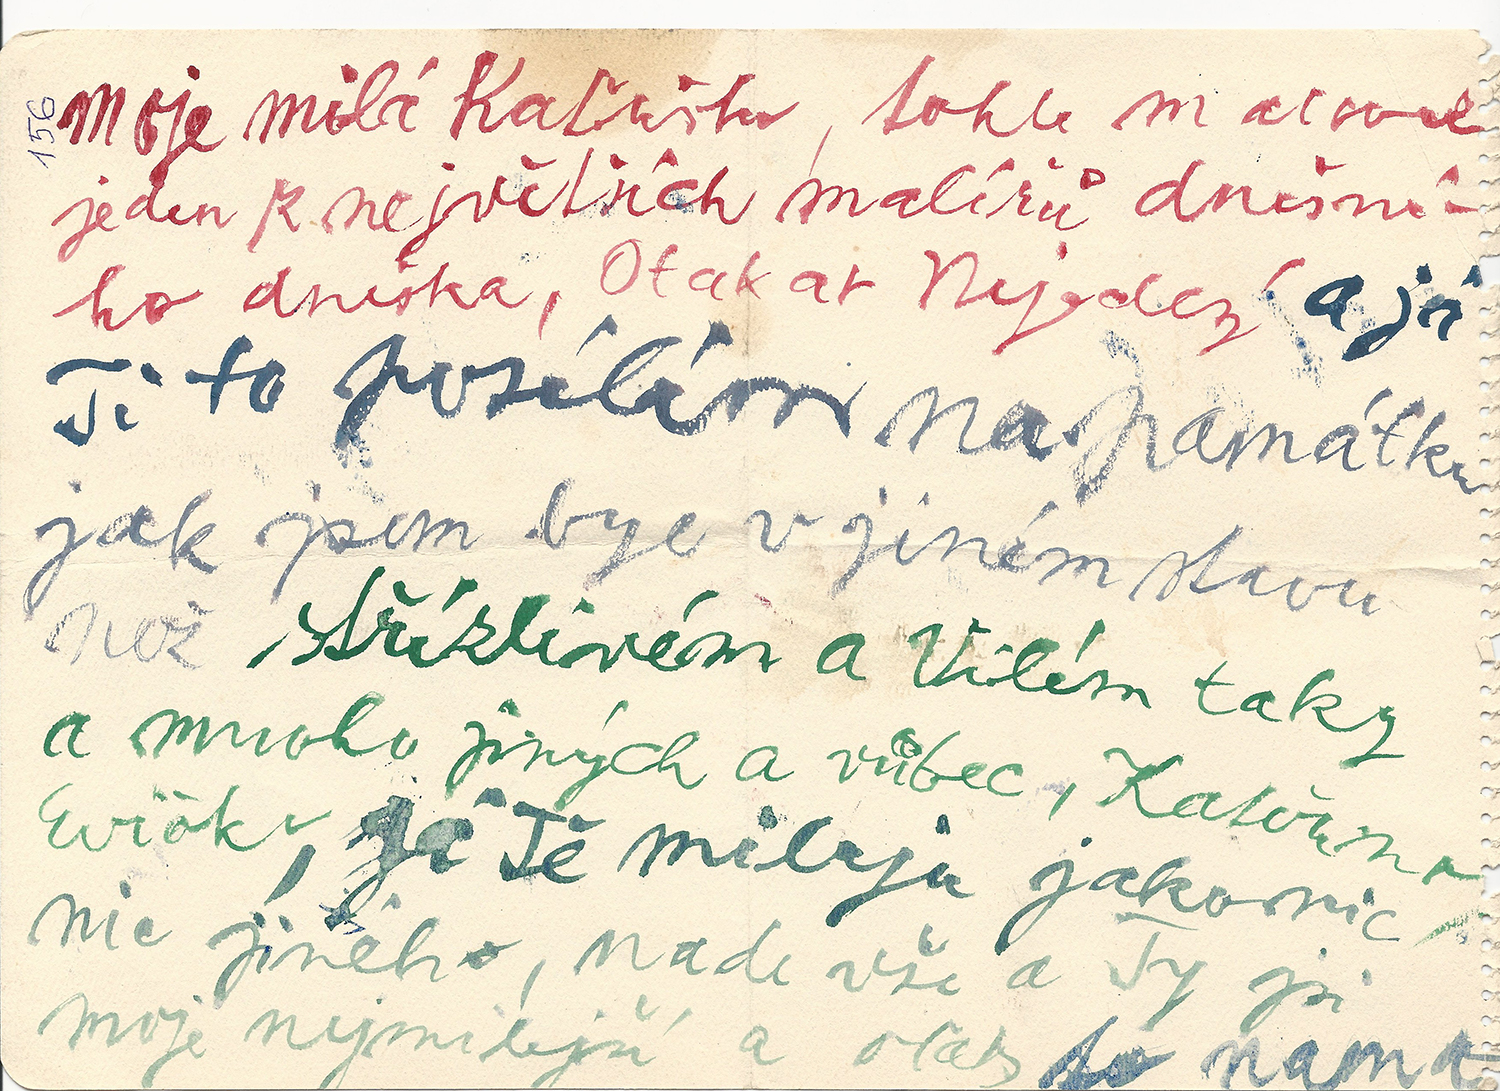 156
moje milá Katuško, tohle maloval
jeden z největších malířů dnešní-
ho dneška, Otakar Nejedlý a já
Ti to posílám na památku
jak jsem byl v jiném stavu
než střízlivém a Vilém taky
a mnoho jiných a vůbec, Kateřino
Evičko, já Tě miluju jako nic
nic jiného, nade vše a Ty jsi
moje nejmilejší a otač to nama